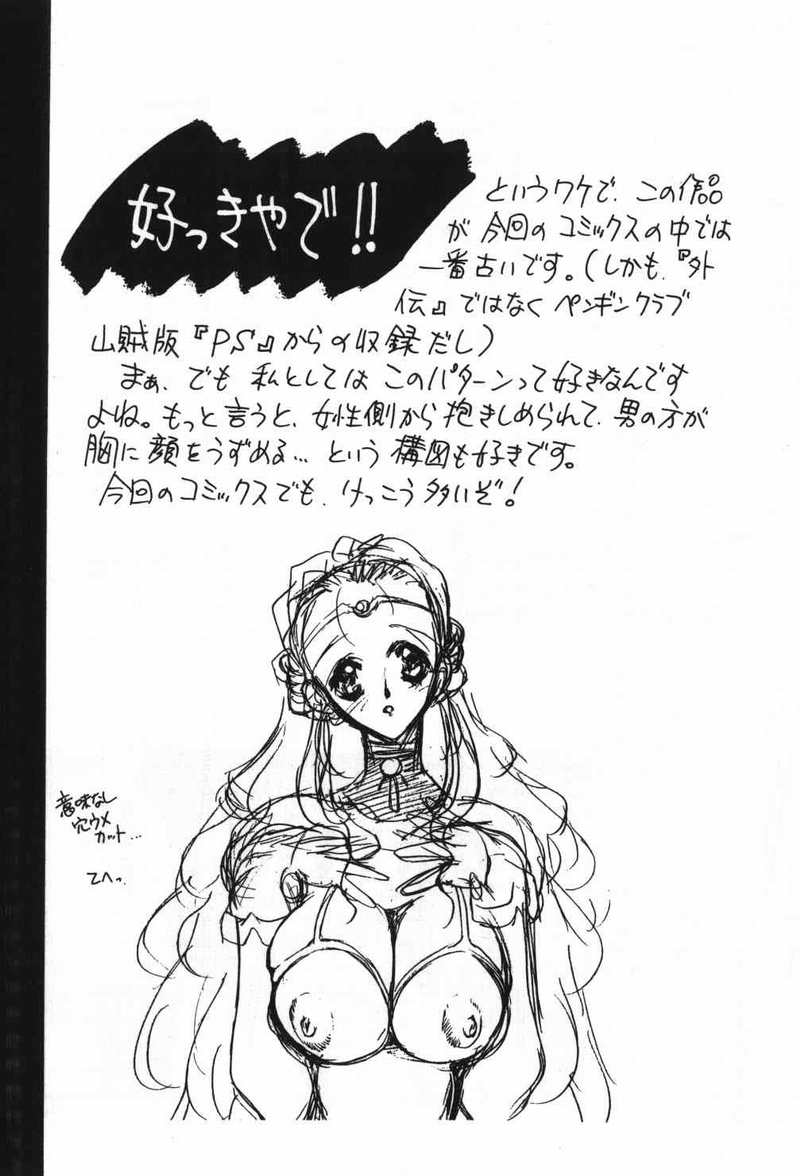 好っきやで!!
というワケで、この作品
が今回のコミックスの中では
一番古いです。(しかも、『外
伝』ではなくペンギンクラブ
山賊版『PS』からの収録だし)
まぁ、でも私としてはこのパターンって好きなんです
よね。もっと言うと、女性側から抱きしめられて、男の方が
胸に顔をうずめる…という構図も好きです。
今回のコミックスでも、けっこう多いぞ!
意味なし
穴ウメ
カット…
てへっ.